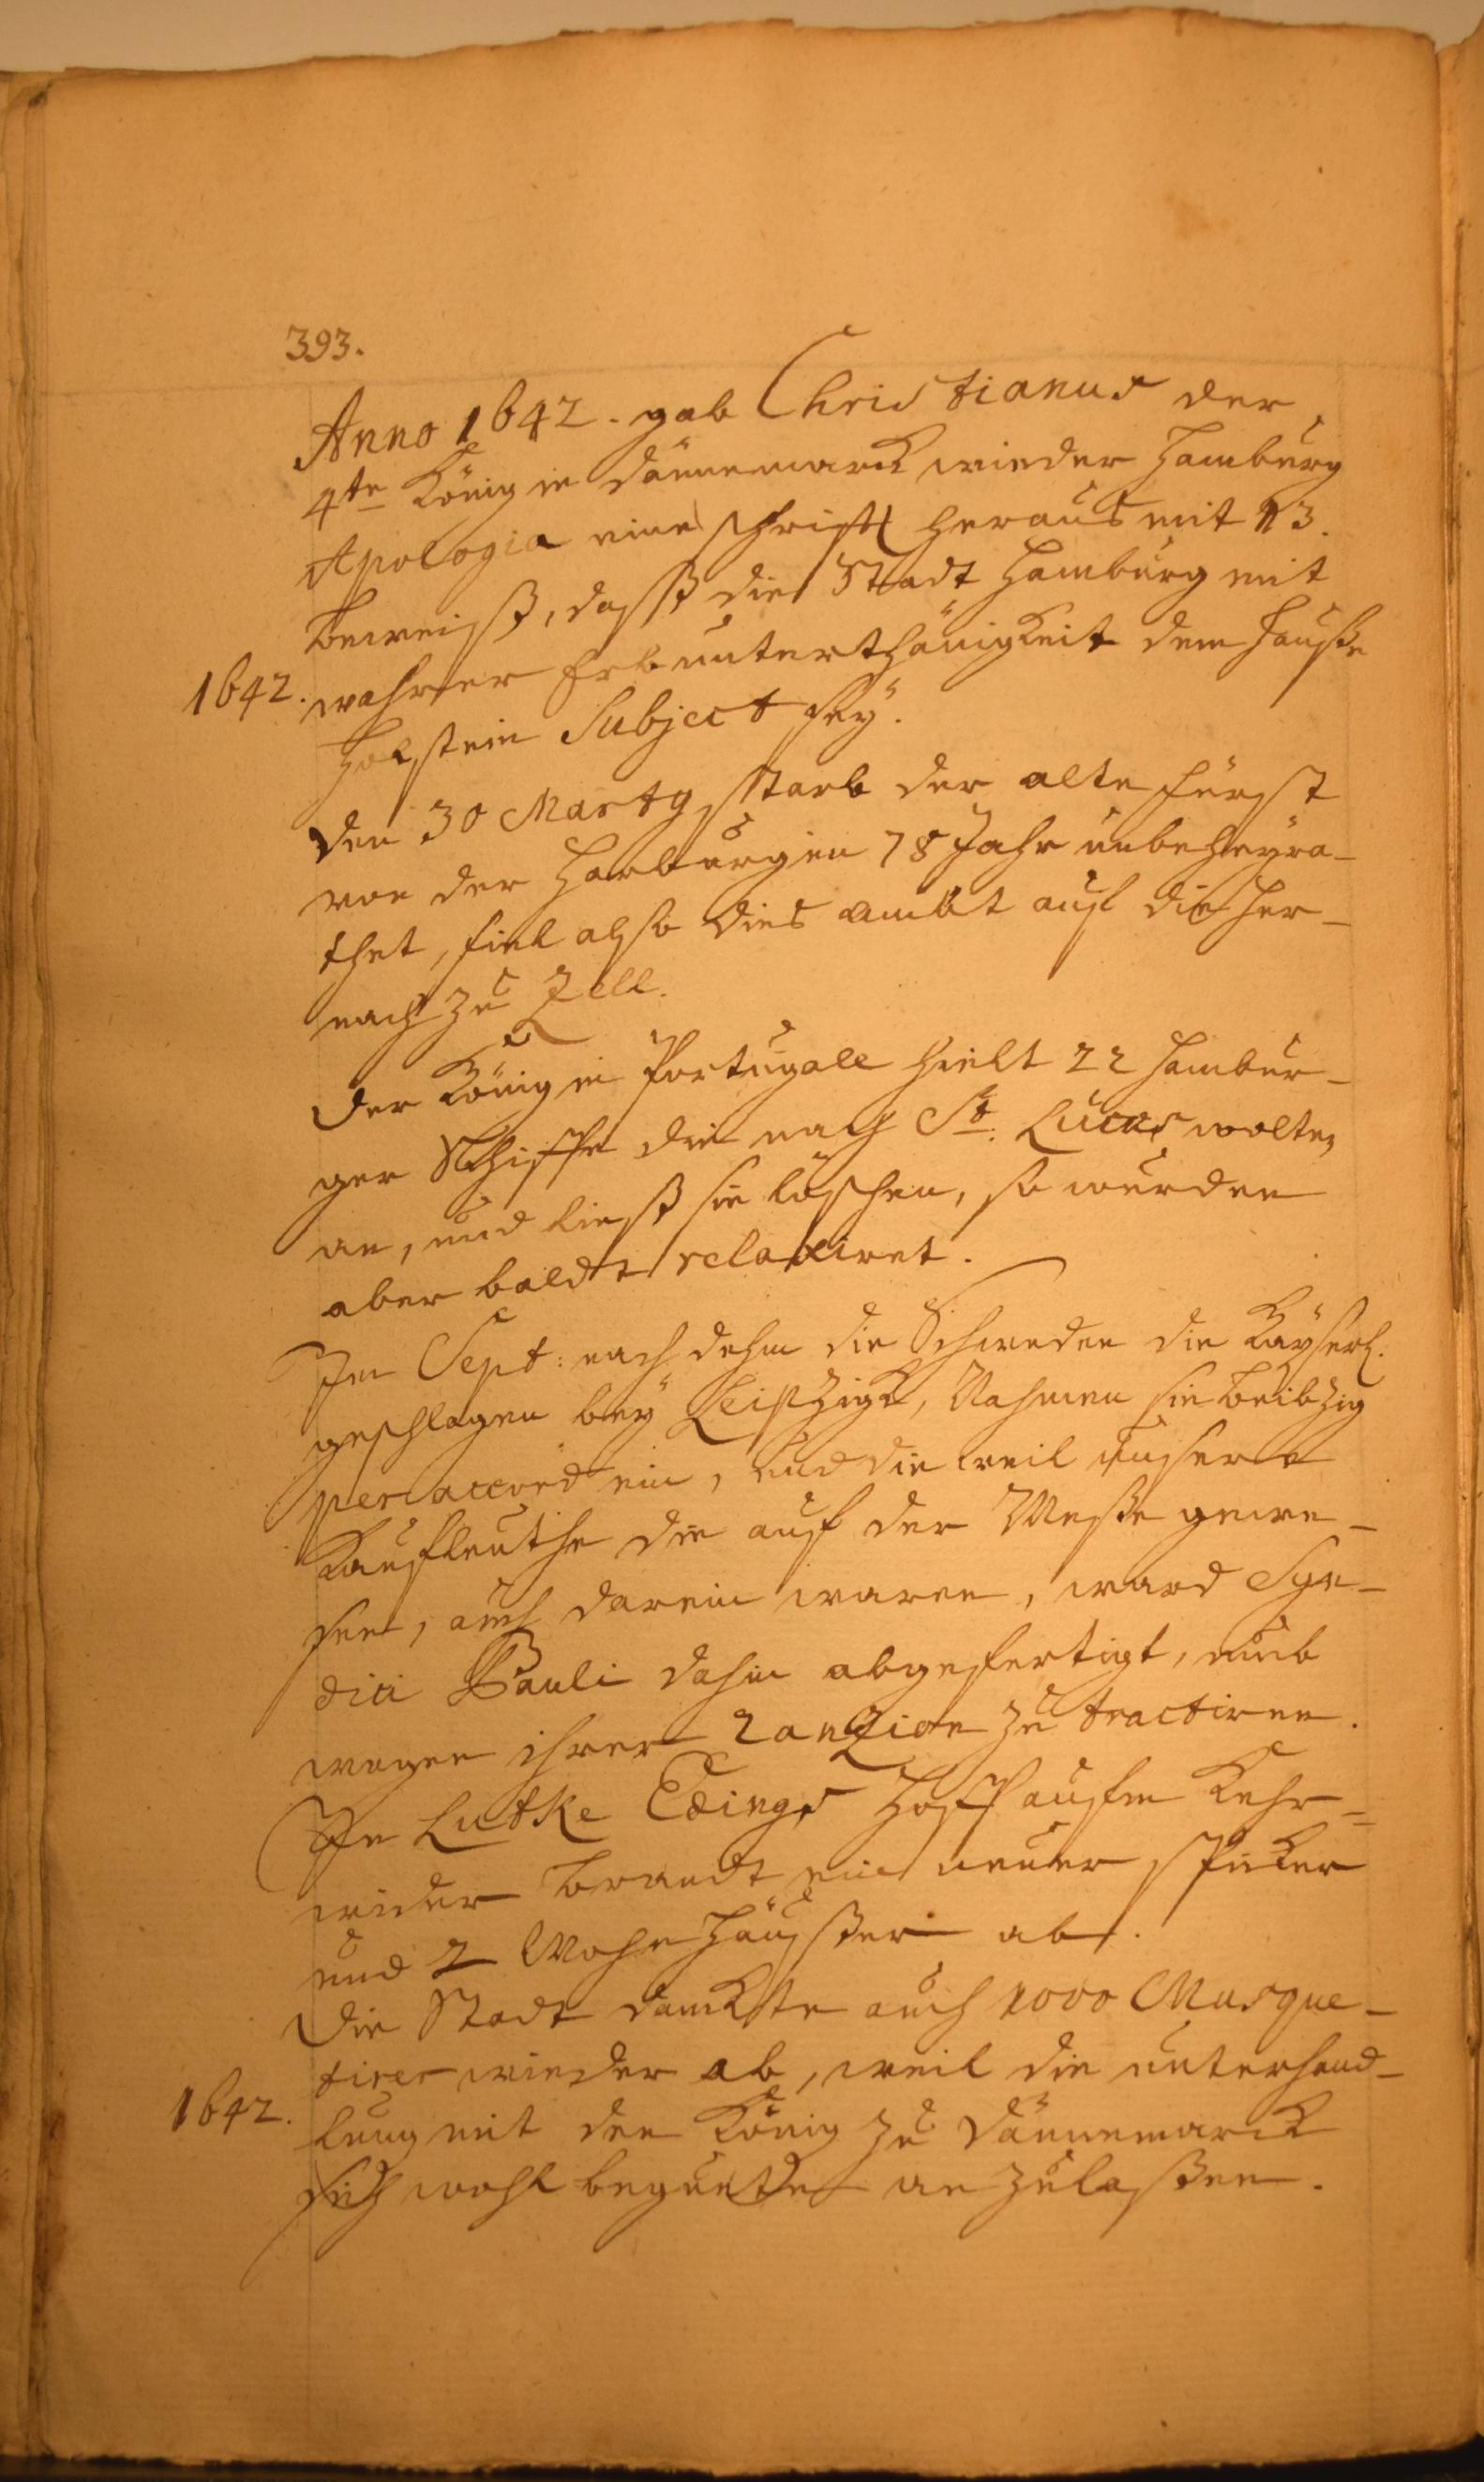 393.
Anno 1642. gab Christianus der
4te König in Dännemarck wieder Hamburg
Apologia eine schrifft heraus mit 13.
beweiß, daß die Stadt Hamburg mit
1642. wahrer Erbunterthänigkeit dem Hauße
Holstein Subject seÿ.
Den 30 Marty starb der alte fürst
von der Harburg im 78 Jahr unbeheÿra-
thet, fiel also dies ambt auf die her-
nach zu Zell.
Der König in Portugall hielt 22 Hambur-
ger Schiffe die nach St. Lucas wolten
an, und ließ sie löschen, sie wurden
aber baldt relaxiret.
Im Sept: nach dehm die Schweden die Kaÿserl.
geschlagen beÿ Leipzigk, Nahmen sie Leibzig
per accord ein, und die weil unsere
Kaufleuthe die auf der Meße gewe-
sen, auch darein waren, ward Syn-
dici Pauli dahin abgefertigt, umb
wegen ihrer ranzion zu tractiren.
In Lutke Edings Hoff aufm Kehr-
wieder brandt ein neuer spicker
und 2 Wohnhäußer ab.
Die Stadt danckte auch 1000 Musque-
tirer wieder ab, weil die unterhand-
1642. lung mit den König zu Dännemarck
sich wohl begunte an zulaßen.